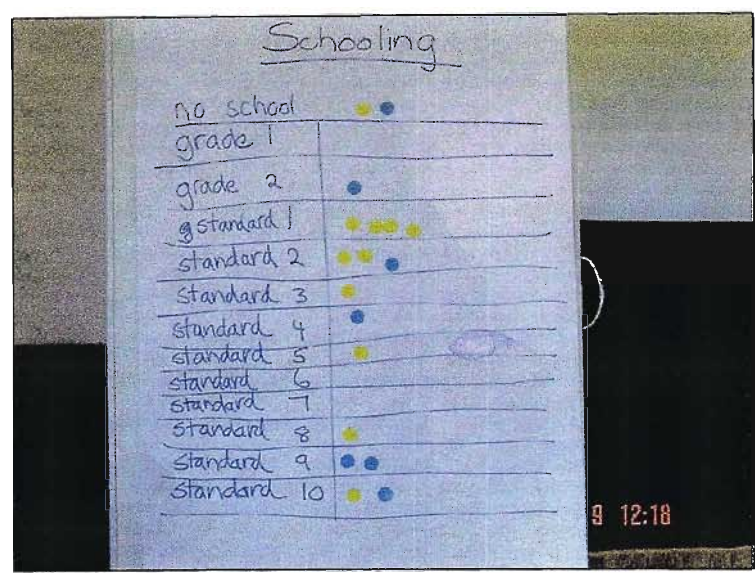 Schooling
no school
grade 1
grade 2
g standard 1
standard 2
standard 3
standard 4
standard 5
standard 6
standard 7
standard 8
standard 9
standard 10
9 12:18